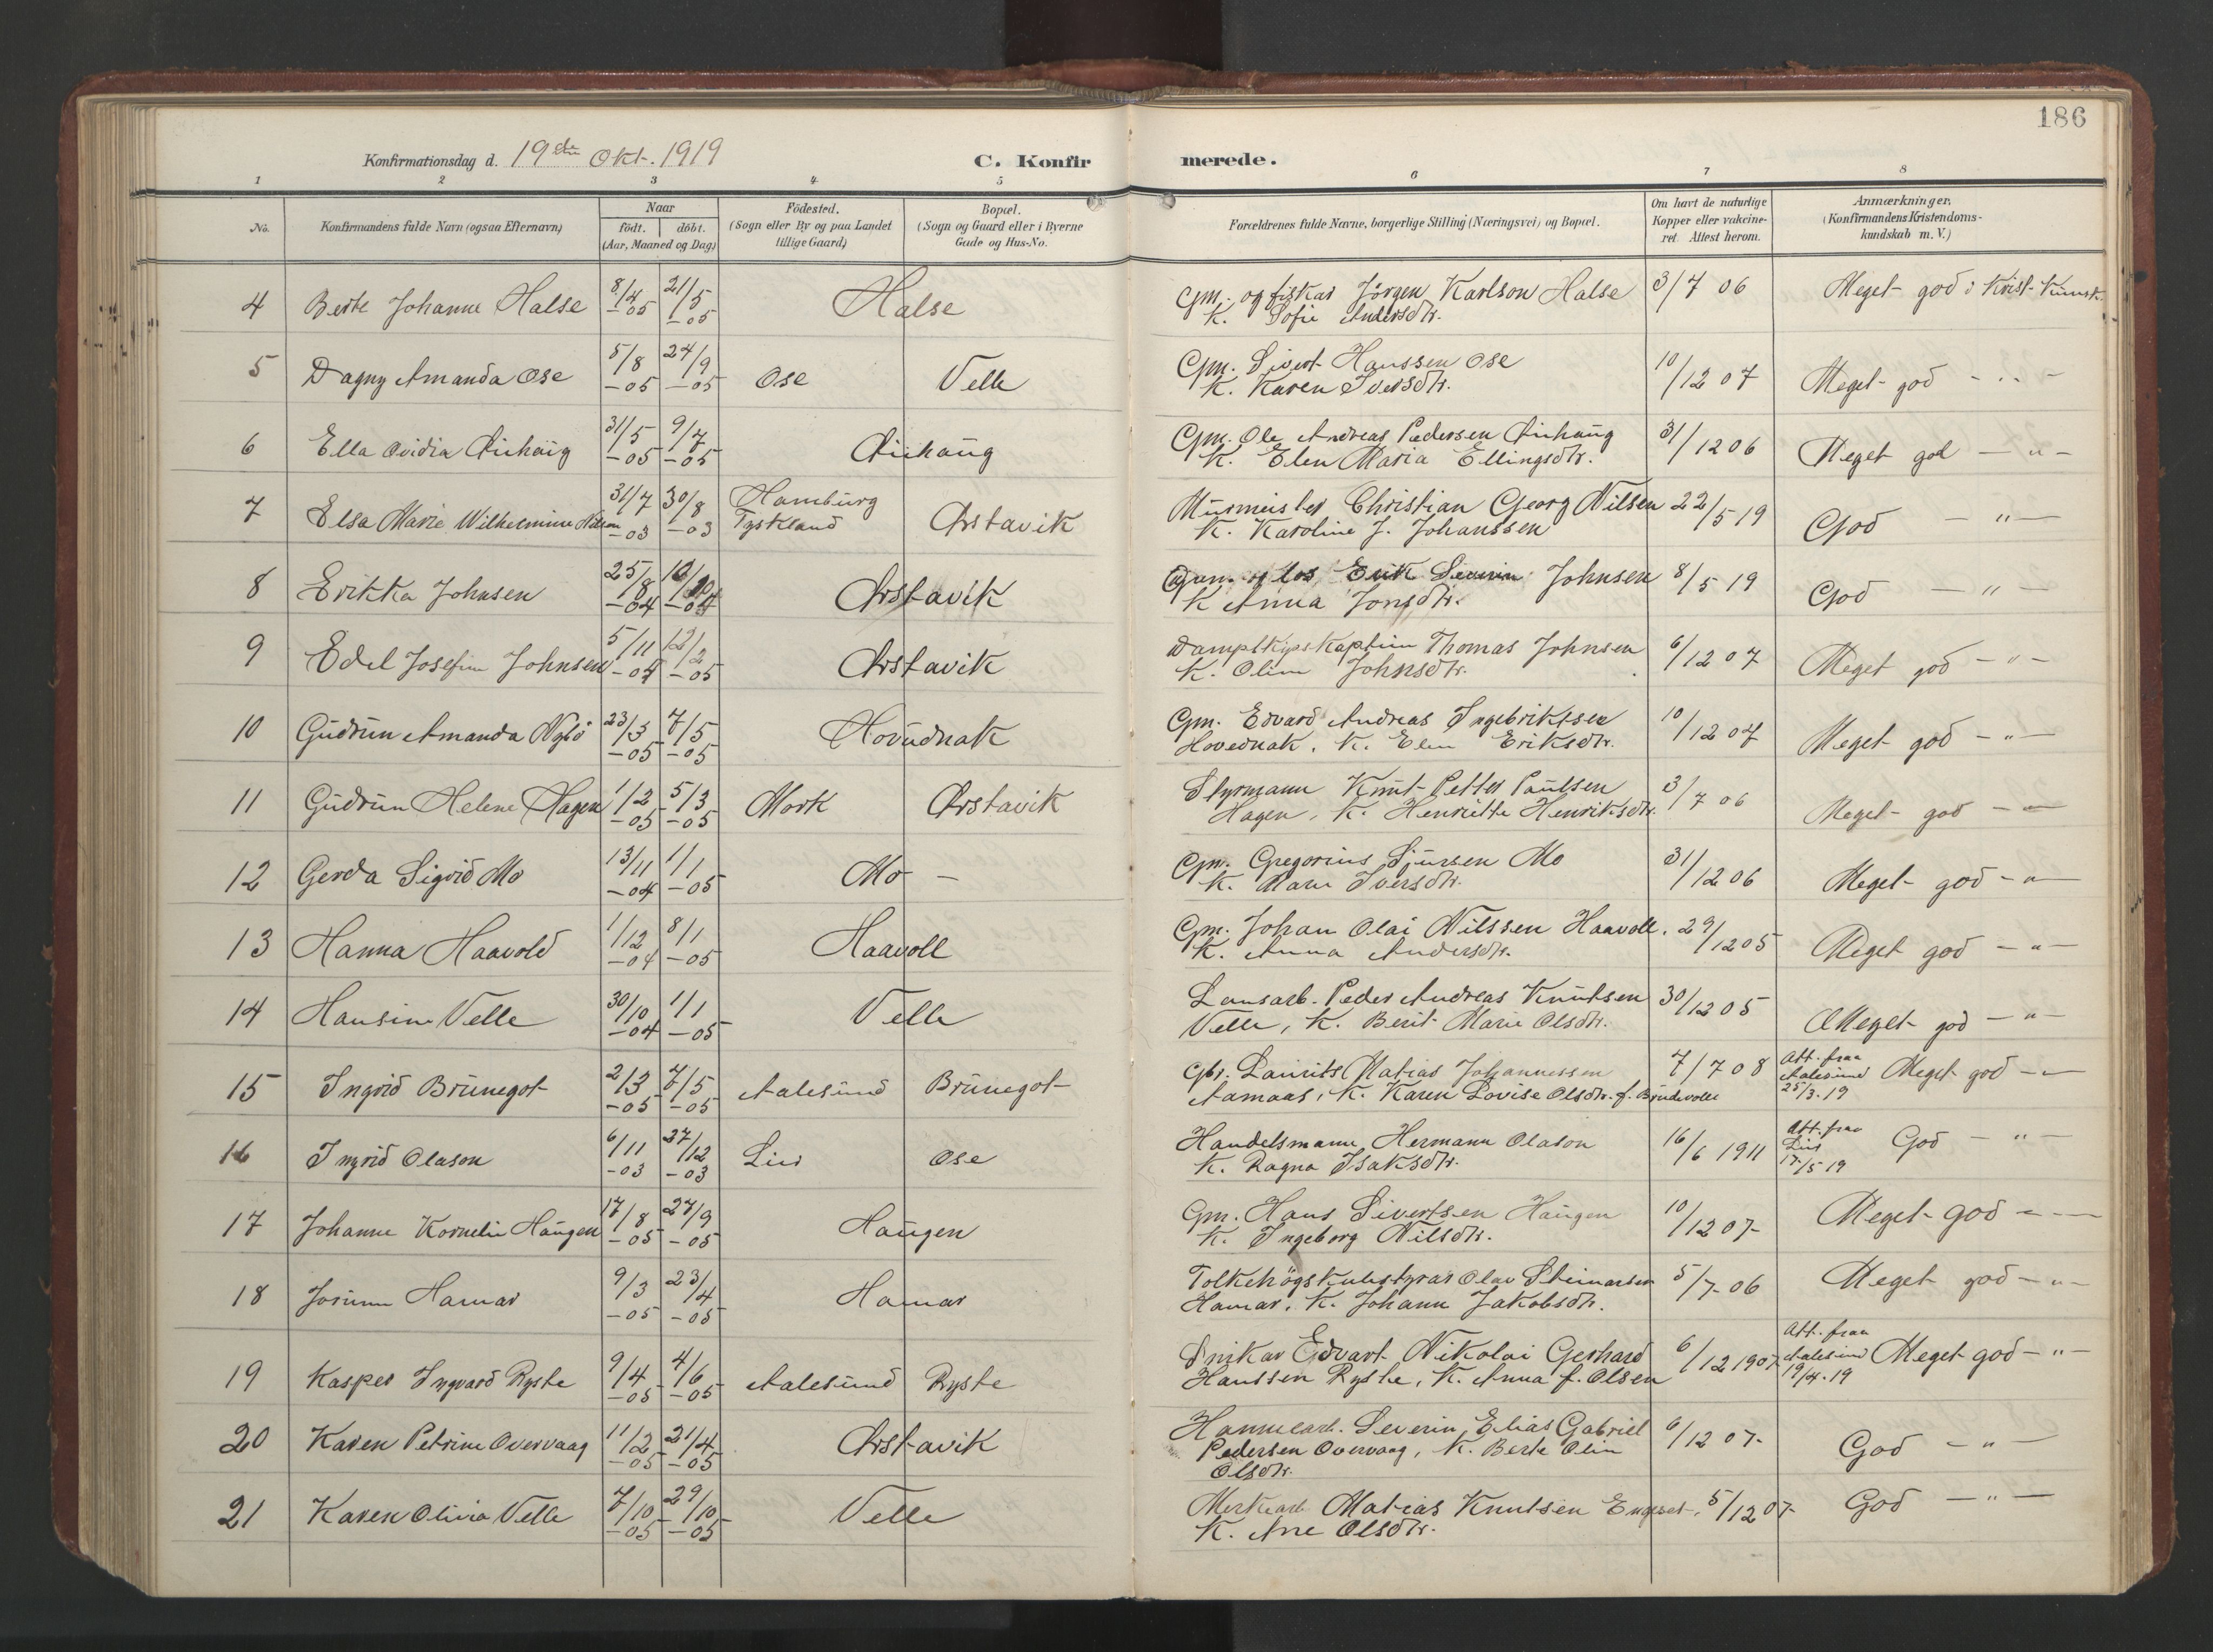 186
Konfirmationsdag d. 19de Okt. 1919
C. Konfirmerede.
1 2 3 4 5 6 7 8
No.
Konfirmandens fulde Navn (ogsaa Efternavn)
Naar
födt. döbt.
(Aar, Maaned og Dag)
Födested.
(Sogn eller By og paa Landet
tillige Gaard)
Bopæl.
(Sogn og Gaard eller i Byerne
Gade og Hus-No.
Forældrenes fulde Navne, borgerlige Stilling (Næringsvei) og Bopæl.
Om havt de naturlige
Kopper eller vakcine-
ret. Attest herom.
Anmærkninger.
(Konfirmandens Kristendoms-
kundskab m. V.)
4 Berte Johanne Halse 8/4 -05 21/5 -05 Halse Gm. og fiskar Jörgen Karlson Halse 3/7 06 Meget god i Krist. Kunsk.
K. Sofie Andersdtr.
5 Dagny Amanda Ose 5/8 -05 24/9 -05 Ose Velle Gm. Sivert Hanssen Ose 10/12 07 Meget god - " -
K. Karen Iversdtr.
6 Ella Ovidia 31/5 -05 9/7 -05 Gm. Ole Andreas Pedersen 31/12 06 Meget god - " -
K. Elen Maria Ellingsdtr.
7 Elsa Marie Wilhelmine Nilsen 31/7 -03 30/8 -03 Hamburg Tyskland Ørstavik Murmeister Christian Georg Nilsen 22/5 19 God - " -
K. Karoline J. Johanssen
8 Erikka Johnsen 25/8 -04 Ørstavik Gm. og los Erik Severin Johnsen 8/5 19 God - " -
K Anna Jonsdtr.
9 Edel Josefine Johnsen 5/11 -04 12/2 -05 Ørstavik Dampskipskaptein Thomas Johnsen 6/12 07 Meget god - " -
K. Oline Johnsdtr.
10 Gudrun Amanda 23/3 -05 7/5 -05 Hovudnak Gm. Edvard Andreas Ingebriktsen 10/12 07 Meget god - " -
Hovednak, K. Elen Eriksdtr.
11 Gudrun Helene Hagen 1/2 -05 5/3 -05 Mork Ørstavik Styrmann Knut Petter Paulsen 3/7 06 Meget god - " -
Hagen, K. Henriette Henriksdtr.
12 Gerda Sigrid Mo 13/11 -04 1/1 -05 Mo - Gm. Gregorius Sjursen Mo 31/12 06 Meget god - " -
K. Maren Iversdtr.
13 Hanna Haavold 1/12 -04 8/1 -05 Haavoll Gm. Johan Olai Nilssen Haavoll. 29/12 05 Meget god - " -
K. Anna Andersdtr.
14 Hansine Velle 30/10 -04 1/1 -05 Velle Lausarb. Peder Andreas Knutsen 30/12 05 Meget god - " -
Velle, K. Berit Marie Olsdtr.
15 Ingrid Brunegot 2/3 -05 7/5 -05 Aalesund Brunegot Gbr. Laurits Matias Johannessen 7/7 08 Att. fraa Aalesund 25/3.19 Meget god - " -
Aamaas, K. Karen Lovise Olsdtr. f. Brudevolle
16 Ingrid Olason 6/11 -03 27/12 -03 Lier Ose Handelsmann Hermann Olason 16/6 1911 Att. fraa Lier 17/5 19 God - " -
K. Ragna Isaksdtr.
17 Johanne Kornelie Haugen 17/8 -05 27/9 -05 Haugen Gm. Hans Sivertsen Haugen 10/12 07- Meget god - " -
K. Ingeborg Nilsdtr.
18 Jorunn Hamar 9/3 -05 23/4 -05 Hamar Folkehögskulestyrar Olav Steinarsen 5/7- 06 Meget god - " -
Hamar, K. Johanne Jakobsdtr.
19 Kasper Ingvard Ryste 9/4 -05 4/6 -05 Aalesund Ryste Snikar Edvart Nikolai Gerhard 6/12 1907 Att. fraa Aalesund 19/4.19 Meget god - " -
Hanssen Ryste, K. Anna f. Olsen
20 Karen Petrine Overvaag 11/2 -05 21/4 -05 Ørstavik Severin Elias Gabriel 6/12 07- God - " -
Pedersen Overvaag, K. Berte Olin
Olsdtr.
21 Karen Olivia Velle 7/10 -05 29/10 -05 Velle Matias Knutsen Engeset. 5/12 07- God - " -
K. Ane Olsdtr.